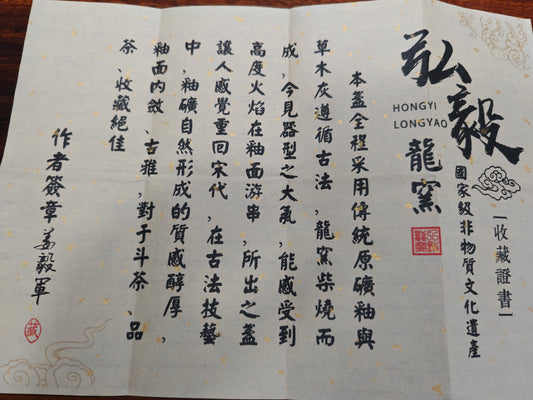 弘毅
HONGYI
LONGYAO
龍窯
国家級非物质文化遺產
收藏證書
本盏全程采用傳統原礦釉與
草木灰遵循古法，龍窯柴燒而
成，今見器型之大氣，能感受到
高度火焰在釉面游串，所出之盏
讓人感覺重回宋代，在古法技藝
中，釉礦自然形成的质感醇厚，
釉面内斂、古雅，對于斗茶、品
茶、收藏絕佳
作者簽章
姜毅軍
藏